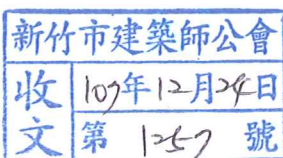 新竹市建築師公會
收文
107年12月24日
第1257號